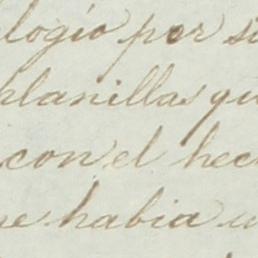 logio por su
planillas qu
con el hec
ue habia u